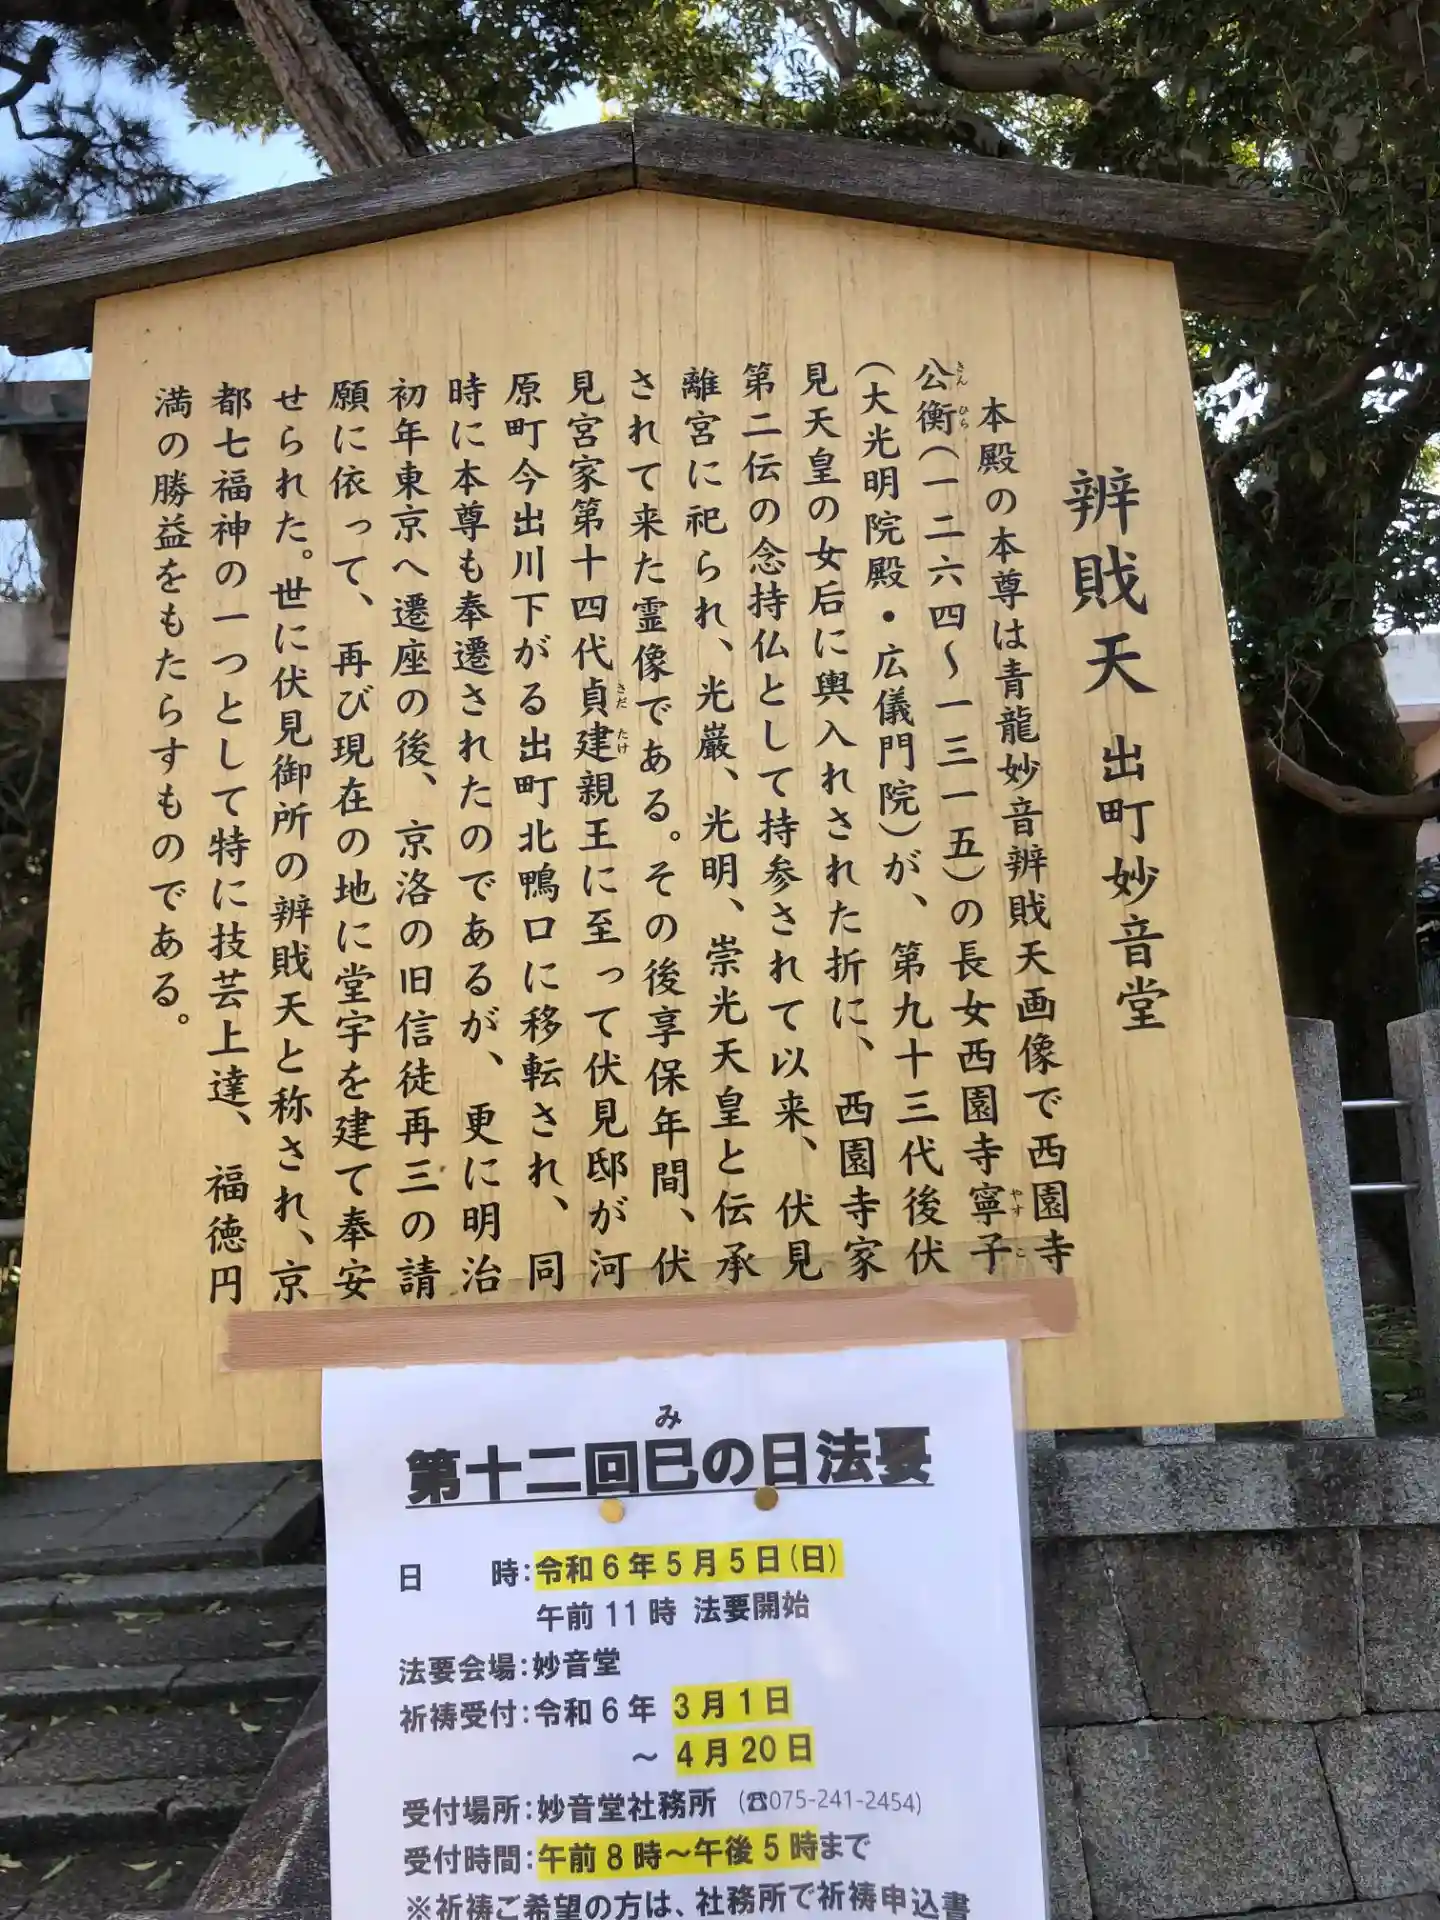 辨戝天 出町妙音堂
本殿の本尊は青龍妙音辨戝天画像で西園寺
公衡(一二六四〜一三一五)の長女西園寺寧子
きん ひら
やす こ
(大光明院殿・広儀門院)が、第九十三代後伏
見天皇の女后に輿入れされた折に、西園寺家
第二伝の念持仏として持参されて以来、伏見
離宮に祀られ、光巌、光明、崇光天皇と伝承
されて来た霊像である。その後享保年間、伏
見宮家第十四代貞建親王に至って伏見邸が河
さだ たけ
原町今出川下がる出町北鴨口に移転され、同
時に本尊も奉遷されたのであるが、更に明治
初年東京へ遷座の後、京洛の旧信徒再三の請
願に依って、再び現在の地に堂宇を建て奉安
せられた。世に伏見御所の辨戝天と称され、京
都七福神の一つとして特に技芸上達、福徳円
満の勝益をもたらすものである。
み
第十二回巳の日法要
日　時:令和6年5月5日(日)
午前11時 法要開始
法要会場:妙音堂
祈祷受付:令和6年 3月1日
〜 4月20日
受付場所:妙音堂社務所 (☎075-241-2454)
受付時間:午前8時〜午後5時まで
※祈祷ご希望の方は、社務所で祈祷申込書